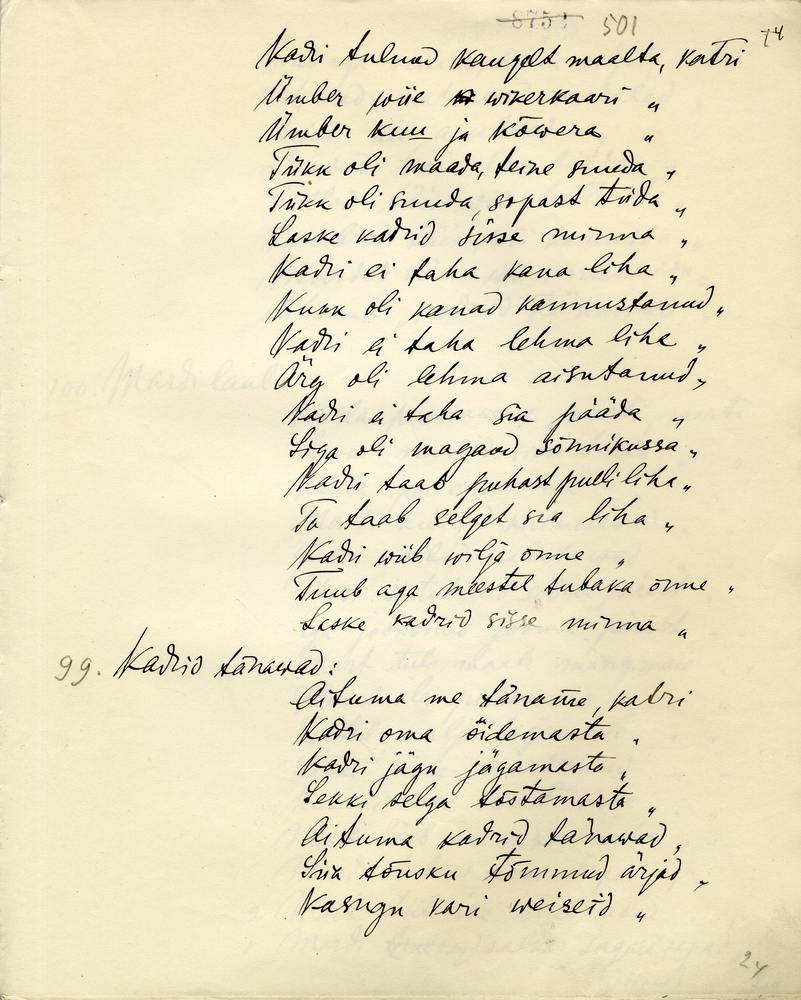 8751 501 74
Kadri tulnud kaugelt maalta, katri
Ümber wiie wikerkaari "
Ümber kuu ja kõwera "
Tükk oli maada, teine suuda "
Tükk oli suuda, sopast tiida "
Laske kadrid sisse minna "
Kadri ei taha kana liha "
Kukk oli kanad kannustanud "
Kadri ei taha lehma liha "
Ärg oli lehma aisutanud "
Kadri ei taha sia pääda "
Siga oli magand sõnnikussa "
Kadri taab puhast pulli liha "
Ta taab selget sia liha "
Kadri wiib wilja õnne "
Tuub aga meestel tubaka õnne "
Laske kadrid sisse minna "
99. Kadrid tänawad:
Aituma me täname, katri
Kadri oma sidemasta "
Kadri jägu jägamasta "
Sekki selga tõstamasta "
Aituma kadrid tänawad "
Siia tõusku tõmmud ärjad "
Kasugu kari weiseid "
24